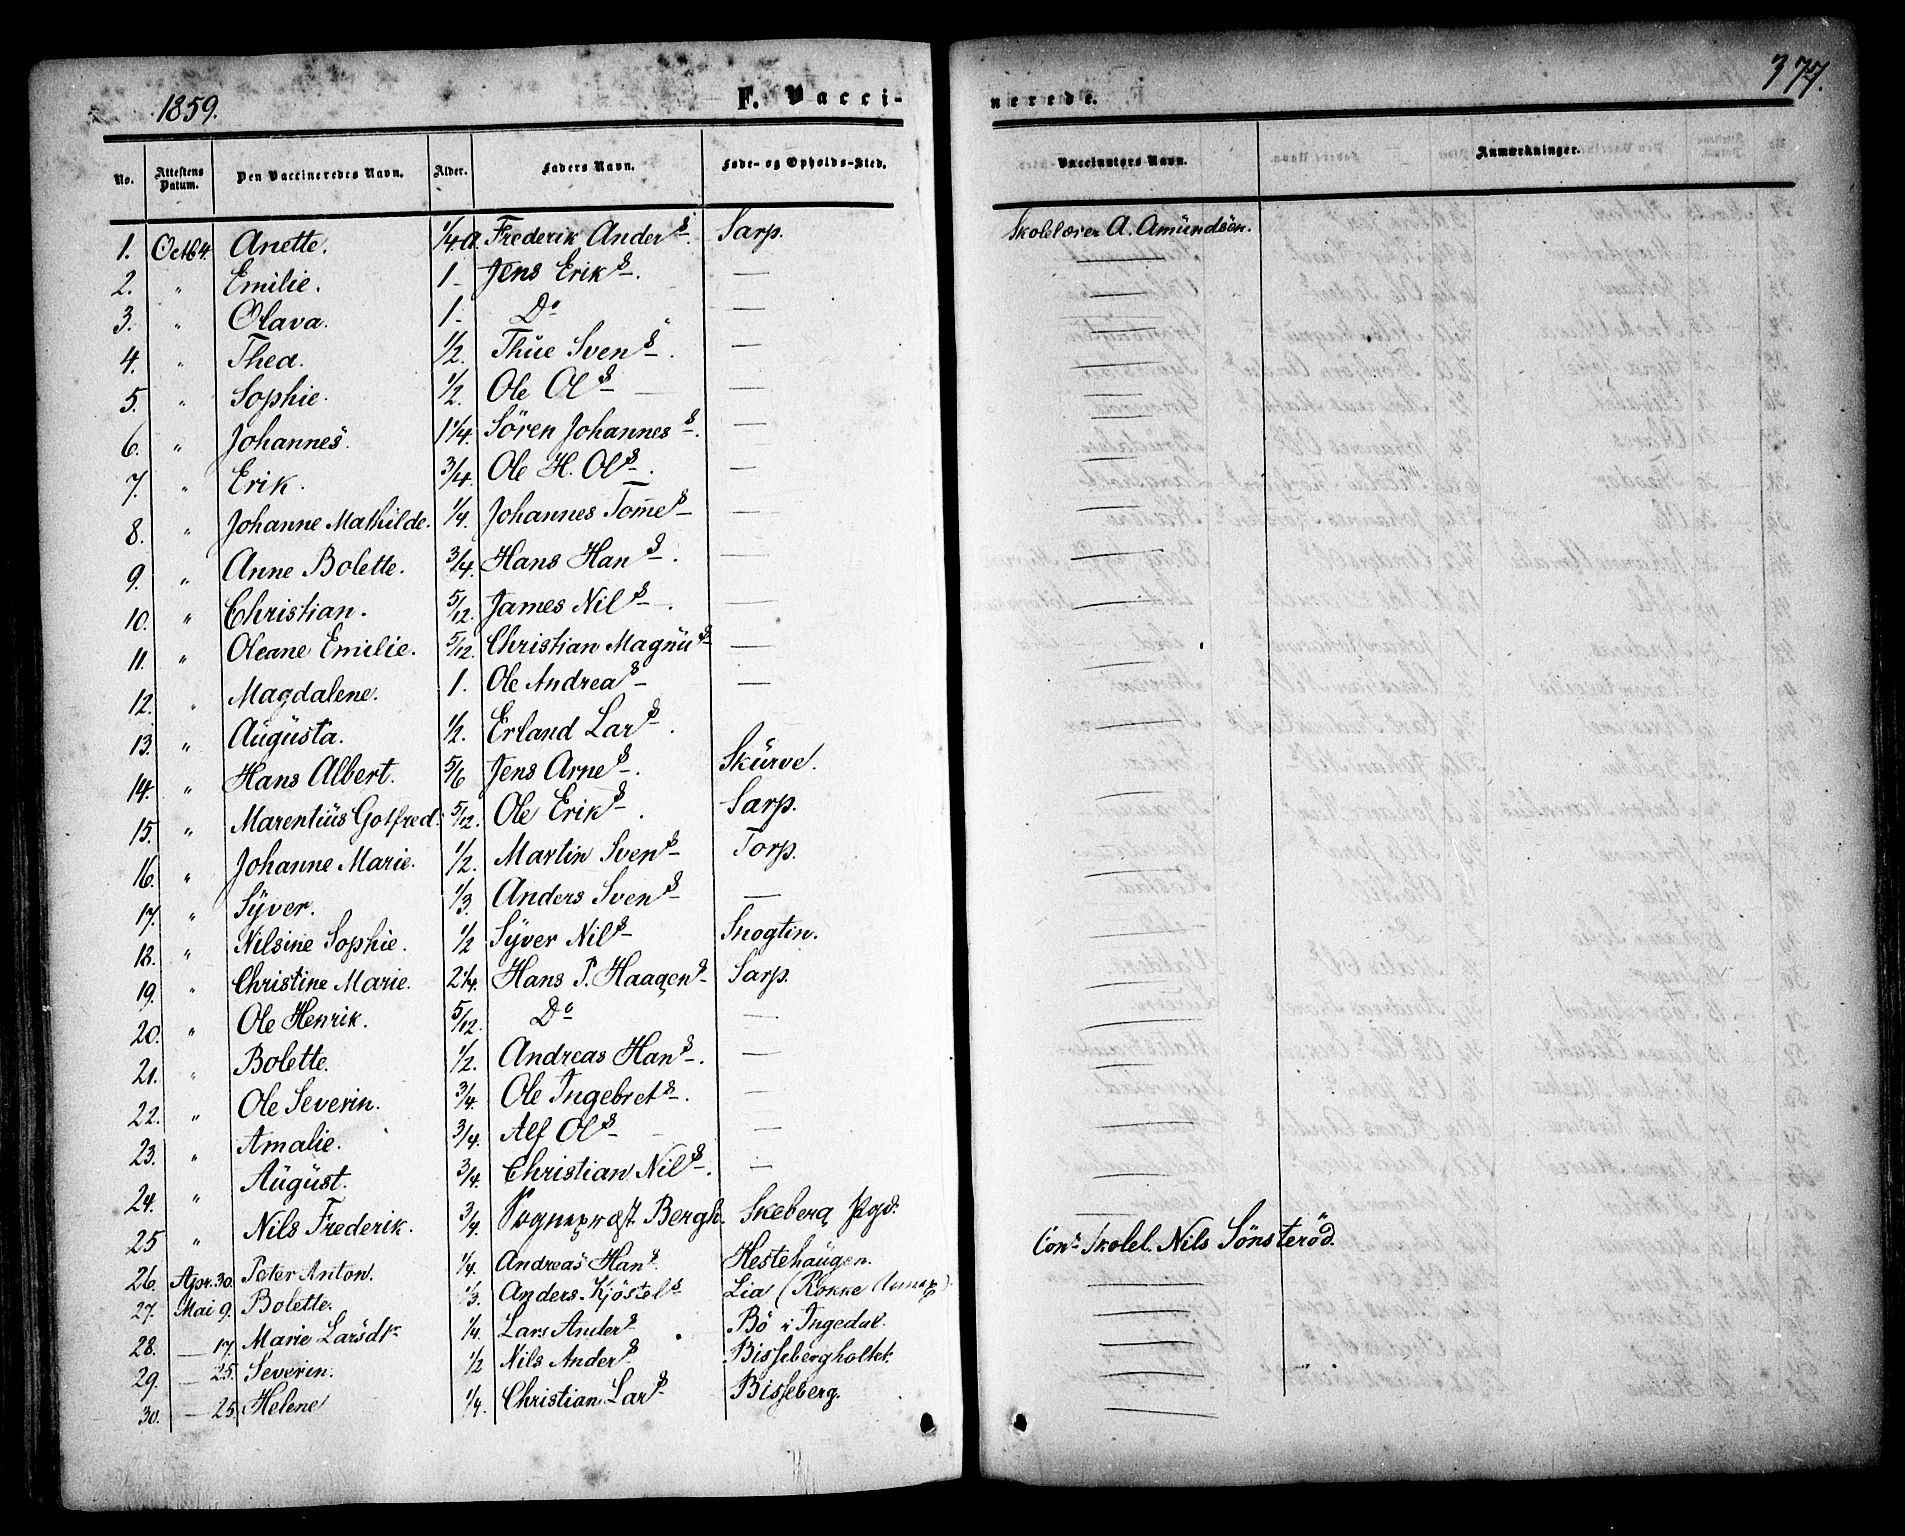 1859.
F. Vacci-
No. Attestens Datum. Den Vaccineredes Navn. Alder. Faders Navn. Føde- og Opholds-Sted.
1. Octb 4. Anette. 1/4 A. Frederik Anders. Sarp.
2. " Emilie. 1 - Jens Eriks. —
3. " Olava. 1 - Do —
4. " Thea. 1/2. Thüe Svens. —
5. " Sophie. 1/2. Ole Ols —
6. " Johannes. 1 1/4. Sören Johanness. —
7. " Erik. 3/4. Ole H. Ols. —
8. " Johanne Mathilde. 1/4. Johannes Tom̄es —
9. " Anne Bolette. 3/4. Hans Hans. —
10. " Christian. 5/12. James Nils. —
11. " Oleane Emilie. 5/12. Christian Magnüs —
12. " Magdalene. 1. Ole Andreas —
13. " Aügüsta. 1/2. Erland Lars. —
14. " Hans Albert. 5/6 Jens Arnes. Skürve.
15. " Marentiüs Gotfred. 5/12. Ole Eriks. Sarp.
16. " Johanne Marie. 1/2. Martin Svens Torp.
17. " Syver. 1/3. Anders Svens —
18. " Nilsine Sophie. 1/2 Syver Nils Snogtin.
19. " Christine Marie. 2 1/4. Hans P. Haagens Sarp.
20. " Ole Henrik. 5/12. Do
21. " Bolette. 1/2. Andreas Hans. —
22. " Ole Severin. 3/4. Ole Ingebrets. —
23. " Amalie. 3/4. Alf Ols —
24. " Aügüst. 3/4. Christian Nils. —
25 " Nils Frederik. 3/4. Sogneprost Bergh. Skeberg Pgd.
26. Apr. 30. Peter Anton. 1/4. Andreas Hans. Hestehaügen.
27. Mai 9. Bolette. 1/3. Anders Kjöstels Lia (Rokke
28. — 17. Marie Larsdtr 1/4. Lars Anders Bö i Ingedal.
29. — 25. Severin. 1/2 Nils Anders Bissebergholtet.
30. — 25. Helene 1/4. Christian Lars Bisseberg.
377.
nerede.
Vaccinators Navn. Anmærkninger.
Skolelærer A. Amündsen.
Cons Skolel. Nils Sönsteröd.